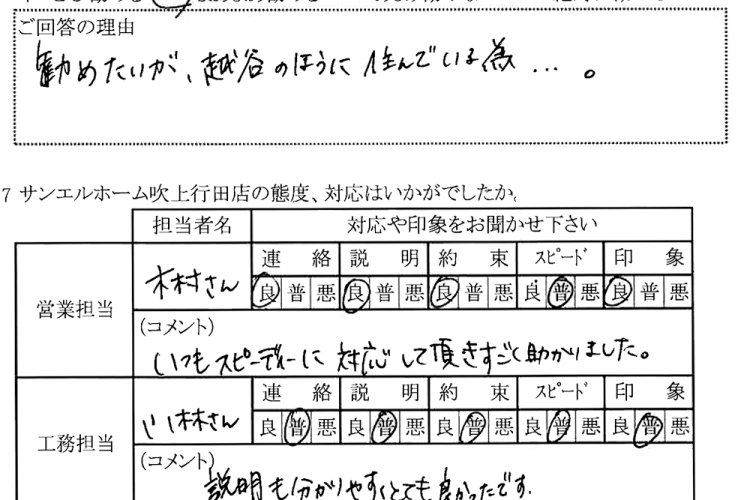 ご回答の理由
勧めたいが、越谷のほうに住んでいる為…。
7 サンエルホーム吹上行田店の態度、対応はいかがでしたか。
担当者名 対応や印象をお聞かせ下さい
営業担当 木村さん 連絡 説明 約束 スピード 印象
良 普 悪 良 普 悪 良 普 悪 良 普 悪 良 普 悪
(コメント)
いつもスピーディーに対応して頂きすごく助かりました。
工務担当 林さん 連絡 説明 約束 スピード 印象
良 普 悪 良 普 悪 良 普 悪 良 普 悪 良 普 悪
(コメント)
説明も分かりやすくとても良かったです.